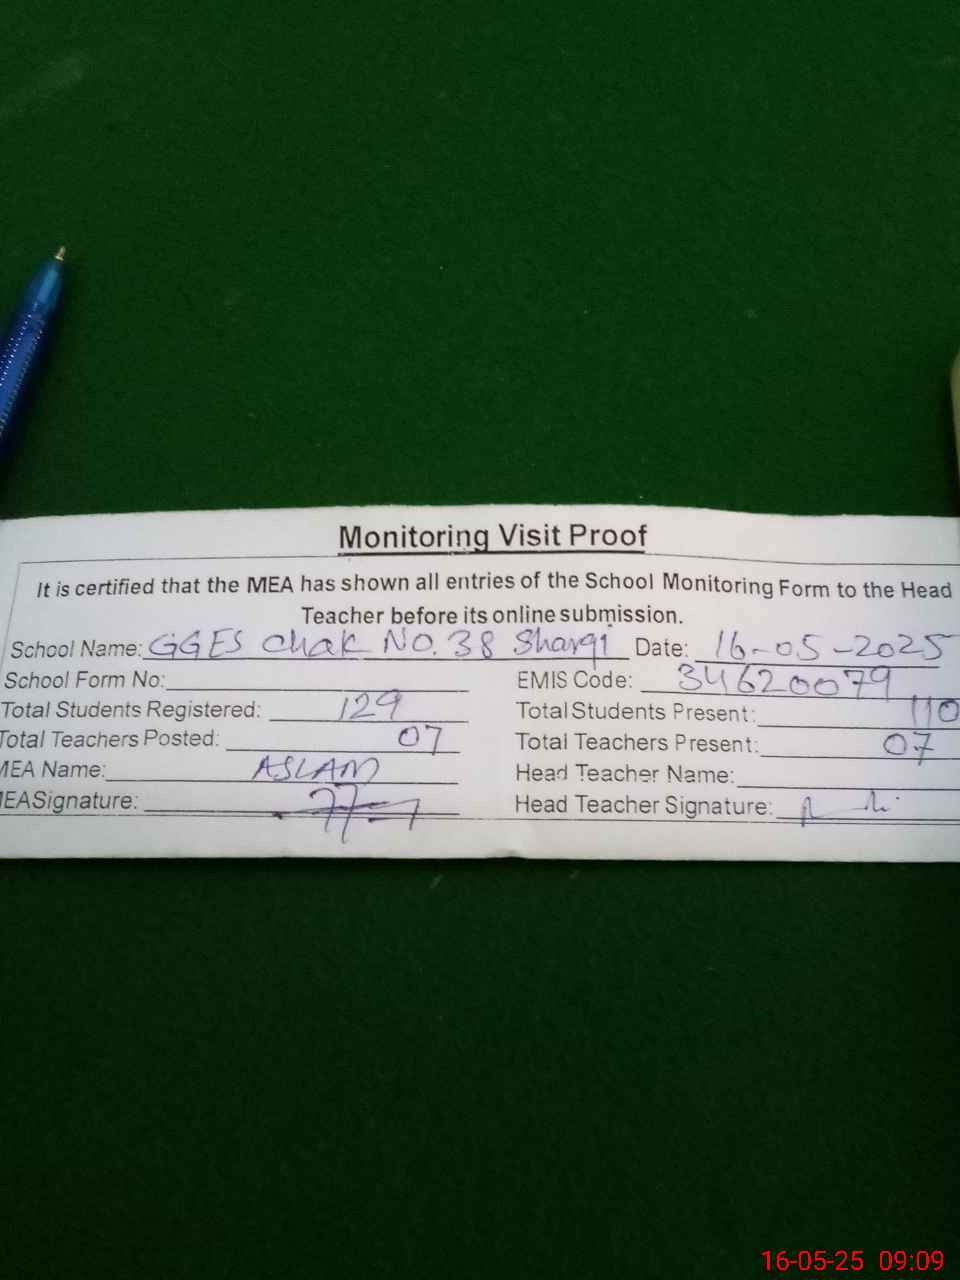 Monitoring Visit Proof
It is certified that the MEA has shown all entries of the School Monitoring Form to the Head
Teacher before its online submission.
School Name: GGES Chak NO. 38 Sharqi Date: 16-05-2025
School Form No: EMIS Code: 34620079
Total Students Registered: 129 Total Students Present: 110
Total Teachers Posted: 07 Total Teachers Present: 07
MEA Name: ASLAM Head Teacher Name:
MEASignature: Head Teacher Signature:
16-05-25 09:09